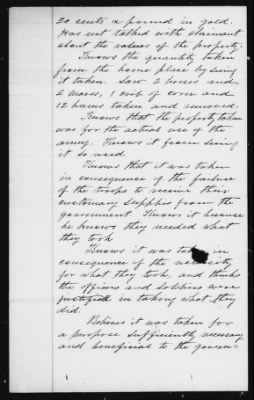 20 cents a pound in gold.
Has not talked with claimant
about the values of the property.
Knows the quantity taken
from the home place by seeing
it taken. Saw 2 horses and
2 mares, 1 crib of corn and
12 hams taken and removed.
Knows that the property taken
was for the actual use of the
army. Knows it from seeing
it so used.
Knows that it was taken
in consequence of the failure
of the troops to receive their
customary supplies from the
government. Knows it because
he knows they needed what
they took
Knows it was taken in
consequence of the necessity
for what they took, and thinks
the officers and soldiers were
justified in taking what they
did.
Believes it was taken for
a purpose sufficiently necessary
and beneficial to the govern-